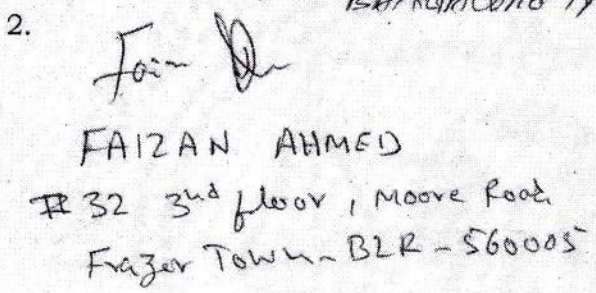 2.
FAIZAN AHMED
# 32 3nd floor, Moore Road
Frazer Town - BLR - 560005